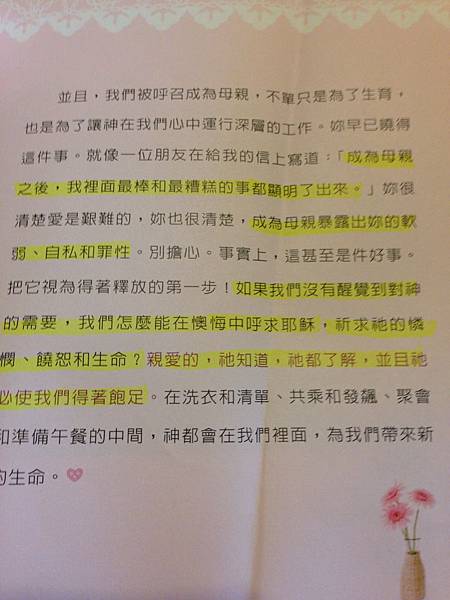 並且，我們被呼召成為母親，不單只是為了生育，
也是為了讓神在我們心中運行深層的工作。妳早已曉得
這件事。就像一位朋友在給我的信上寫道：「成為母親
之後，我裡面最棒和最糟糕的事都顯明了出來。」妳很
清楚愛是艱難的，妳也很清楚，成為母親暴露出妳的軟
弱、自私和罪性。別擔心。事實上，這甚至是件好事。
把它視為得著釋放的第一步！如果我們沒有醒覺到對神
的需要，我們怎麼能在懊悔中呼求耶穌，祈求祂的憐
憫、饒恕和生命？親愛的，祂知道，祂都了解，並且祂
必使我們得著飽足。在洗衣和清單、共乘和發飆、聚會
和準備午餐的中間，神都會在我們裡面，為我們帶來新
的生命。